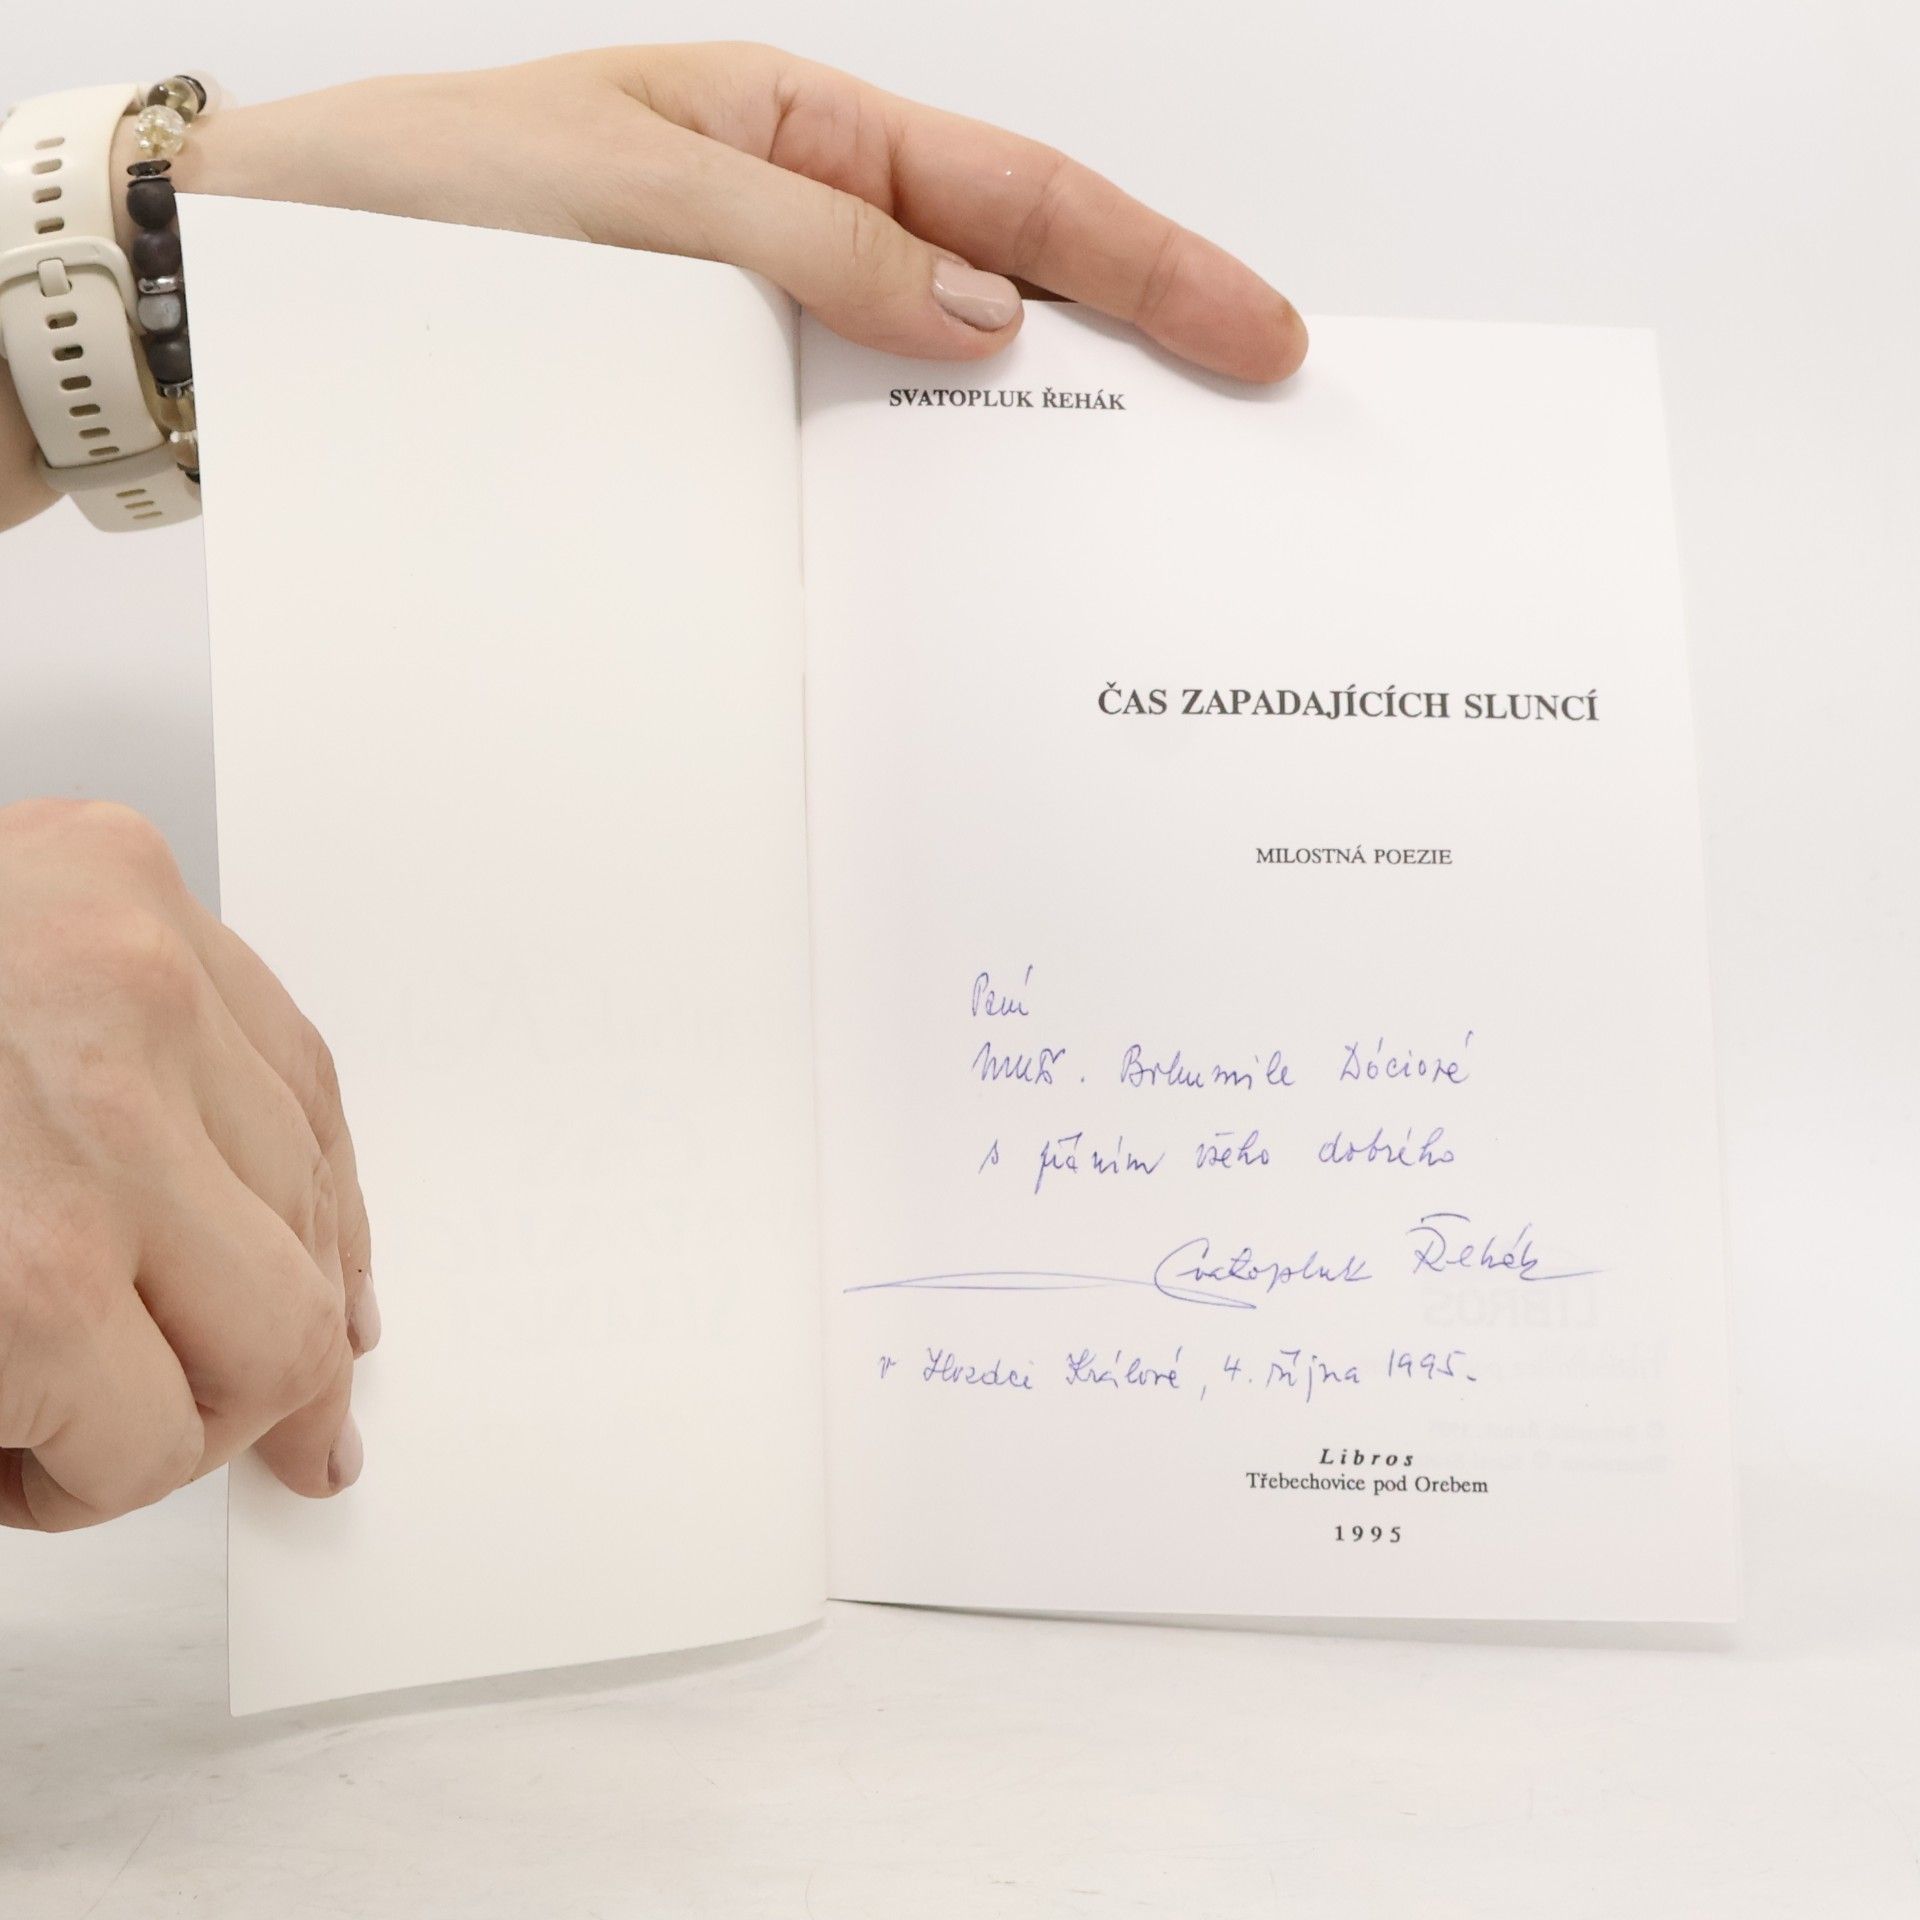 SVATOPLUK ŘEHÁK
ČAS ZAPADAJÍCÍCH SLUNCÍ
MILOSTNÁ POEZIE
Paní
Bohumile Dóciové
s přáním všeho dobrého
Svatopluk Řehák
v Hradci Králové, 4. října 1995.
Libros
Třebechovice pod Orebem
1995